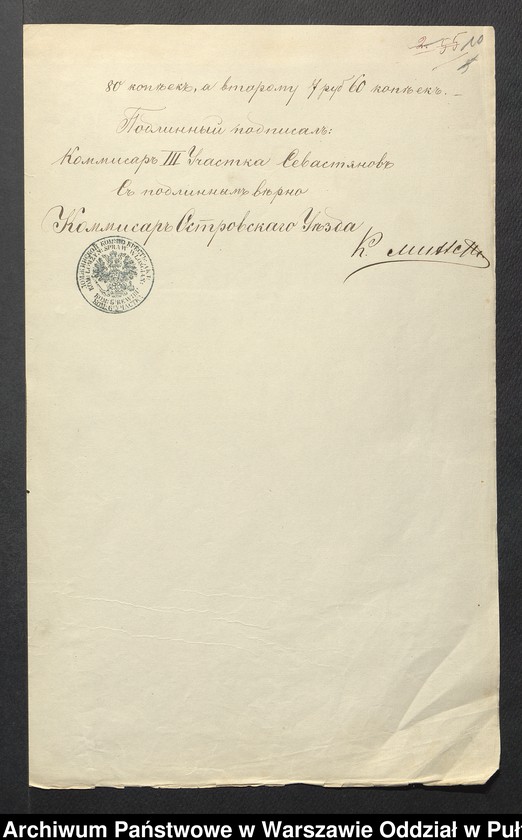 55 10
80 копѣекъ, а второму 7 руб 60 копѣекъ. –
Подлинный подписалъ:
Коммисаръ III Участка Севастяновъ
Съ подлиннымъ вѣрно
Коммисаръ Островскаго Уѣзда
К.
Archiwum Państwowe w Warszawie Oddział w Puł